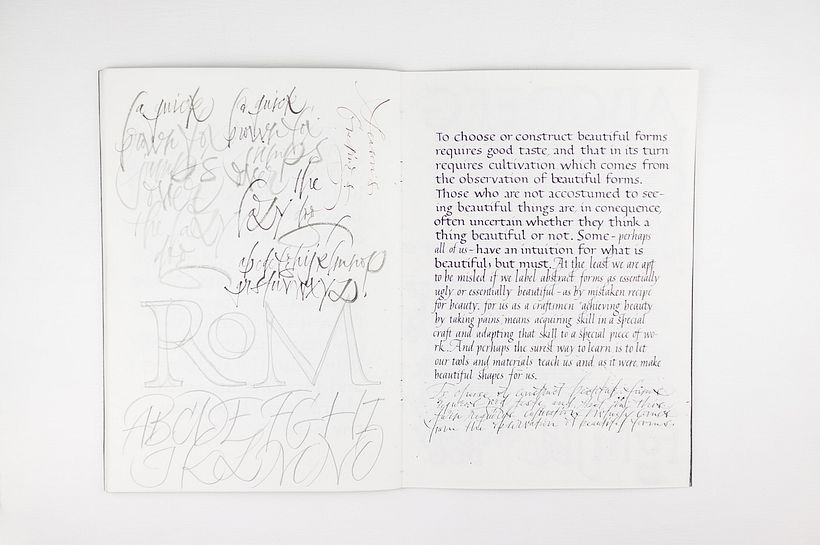 a quick a quick
brown fox brown fox
jumps jumps
over over the
the lazy lazy
abcdefghijklmnop
qrstuvwxyz.
ROM
ABCDEFGHI
JKLMNO
To choose or construct beautiful forms
requires good taste, and that in its turn
requires cultivation which comes from
the observation of beautiful forms.
Those who are not accostumed to see-
ing beautiful things are, in conequence,
often uncertain whether they think a
thing beautiful or not. Some - perhaps
all of us - have an intuition for what is
beautiful; but must. At the least we are apt
to be misled if we label abstract forms as essentially
ugly or essentially beautiful - as by mistaken recipe
for beauty. for us as a craftsmen achieving beauty
by taking pains means acquiring skill in a special
craft and adapting that skill to a special piece of wo-
rk. And perhaps the surest way to learn is to let
our tools and materials teach us and, as it were, make
beautiful shapes for us.
To choose or construct beautiful
requires good taste, and that in its
turn requires cultivation which comes
from the observation of beautiful forms.